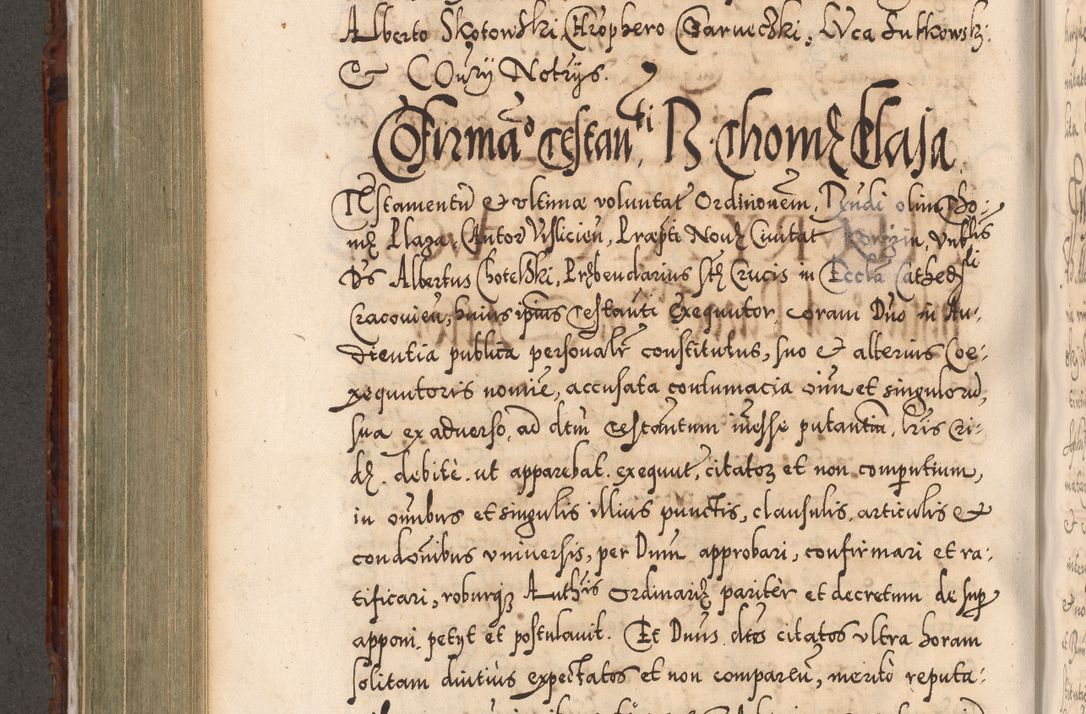 Alberto Skotowski, Chrophero Garneckki, Luca Sutkowsky
& COury Notrys.
COfirmão Testanti R. Thomę Plaza
TEstamentū et vltimæ voluntat Ordinionem, Dnudi olim Tho-
mę Plaza, Cantor Visliciēn, Præpti Nouę Ciuitat Korzin, Vnblis
Ds Albertus Chotelski, Prębendarius Stę Crucis in Eccla Cathedli
Cracouien, huius ipius Testanti Exequutor, coram Dno in Au-
dientia publica personalr constitutus, suo et alterius Coe-
xequutoris nomie, accusata contumacia oium et singulorū,
sua ex aduerso, ad dtm Testantum inesse putantium, lris Cri-
dę. debitè ut apparebat exequut, citatorz et non comprntium,
in omnibus et singulis illius punctis, clausulis, articulis et
condonibus vniuersis, per Dnm approbari, confirmari et ra-
tificari, roburqz Authris Ordinarię paritèr et decretum desup
apponi petyt et postulauit. Et Dnus dtos citatos vltra horam
solitam diutius expectatos et non comparēn, meritò reputa-